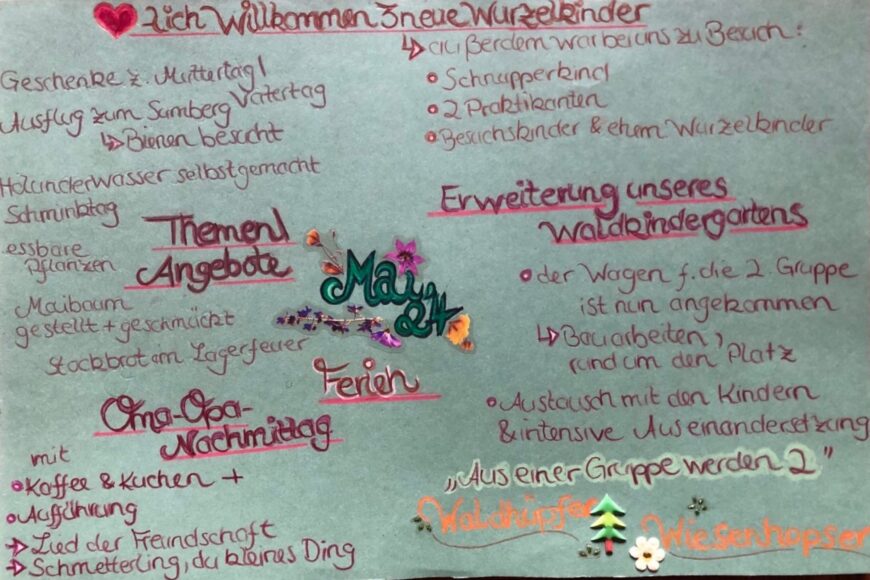 ♥lich Willkommen 3 neue Wurzelkinder
↳ außerdem war bei uns zu Besuch:
• Schnupperkind
• 2 Praktikanten
• Besuchskinder & ehem Wurzelkinder
Geschenke z. Muttertag/
Vatertag
Ausflug zum Sumberg
↳ Bienen besucht
Holunderwasser selbstgemacht
Schminktag
essbare
Pflanzen
Maibaum
gestellt + geschmückt
Stockbrot im Lagerfeuer
Themen/
Angebote
Mai
24
Ferien
Erweiterung unseres
Waldkindergartens
• der Wagen f. die 2. Gruppe
ist nun angekommen
↳ Bauarbeiten,
rund um den Platz
• Austausch mit den Kindern
& intensive Auseinandersetzung
„Aus einer Gruppe werden 2"
Waldhüpfer
Wiesenhopser
Oma-Opa-
Nachmittag
mit
• Kaffee & Kuchen +
• Aufführung
→ Lied der Freundschaft
→ Schmetterling, du kleines Ding